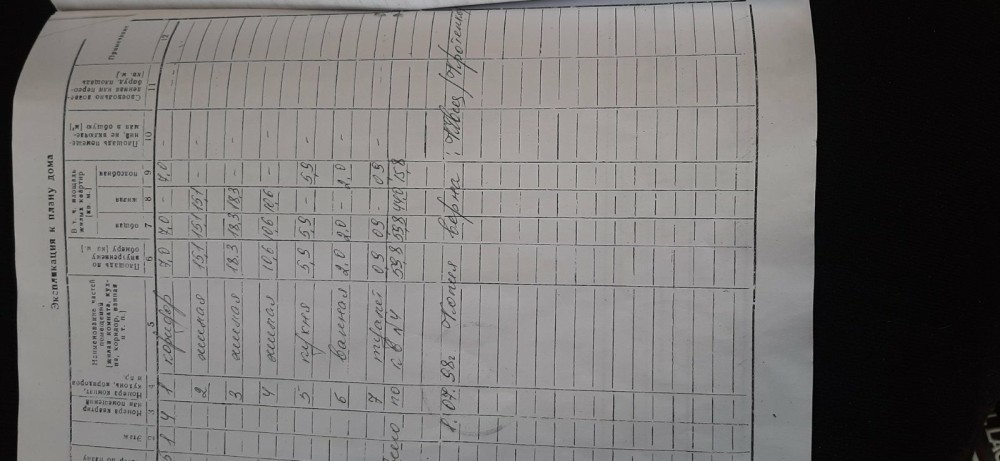 Экспликация к плану дома
Этаж
Номера квартир или помещений
Номера комнат, кухонь, коридоров и т.д.
Наименование частей помещений (жилая комната, кухня, коридор, ванная и т. п.)
Площадь по внутреннему обмеру [кв. м.]
В т. ч. площадь жилых квартир [кв. м.]
общая
жилая
подсобная
Площадь помещений, не включаемая в общую [м²]
Самовольно возведенная или переоборуд. площадь [кв. м.]
Примечание
2 3 4 5 6 7 8 9 10 11 12
1 4 1 коридор 7,0 7,0 - 7,0 -
2 жилая 15,1 15,1 15,1 - -
3 жилая 18,3 18,3 18,3 - -
4 жилая 10,6 10,6 10,6 - -
5 кухня 5,9 5,9 - 5,9 -
6 ванная 2,0 2,0 - 2,0 -
7 туалет 0,9 0,9 - 0,9 -
по кв N4 59,8 59,8 44,0 15,8
8. 07. 98г Копия верна: